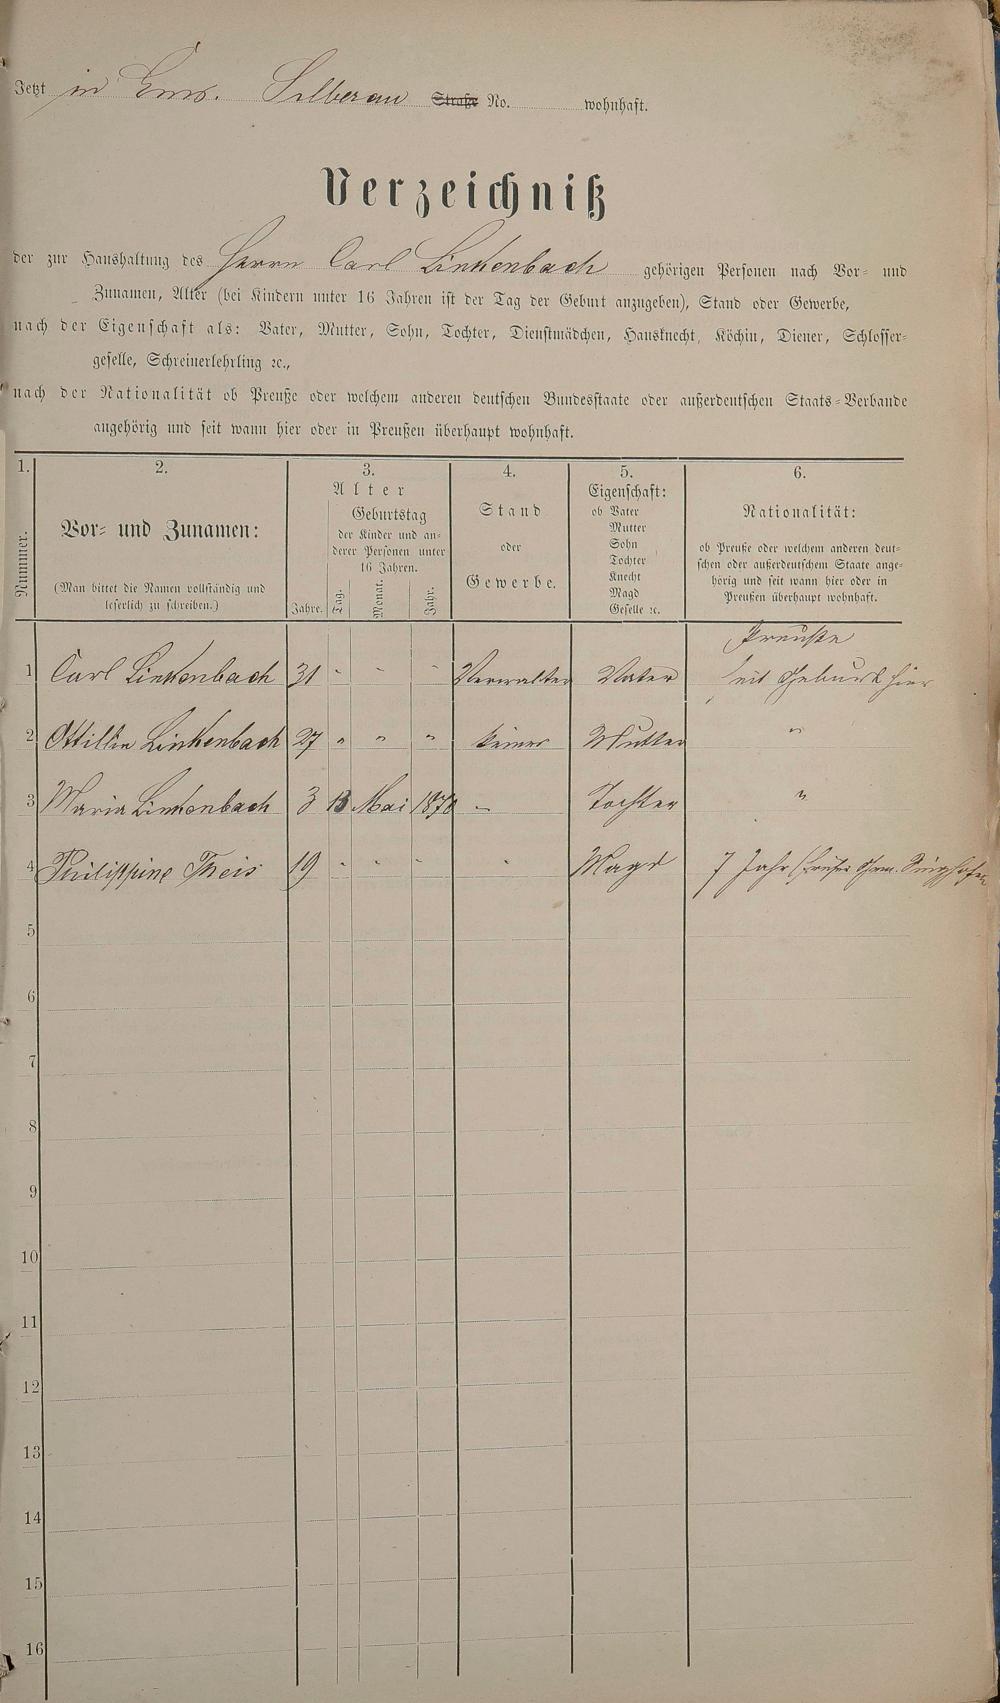 Jetzt in Ems. Silberau Straße No. wohnhaft.
Verzeichniß
der zur Haushaltung des Herrn Carl Linkenbach gehörigen Personen nach Vor- und
Zunamen, Alter (bei Kindern unter 16 Jahren ist der Tag der Geburt anzugeben), Stand oder Gewerbe,
nach der Eigenschaft als: Vater, Mutter, Sohn, Tochter, Dienstmädchen, Hausknecht, Köchin, Diener, Schlosser-
geselle, Schreinerlehrling ꝛc.,
nach der Nationalität ob Preuße oder welchem anderen deutschen Bundesstaate oder außerdeutschen Staats-Verbande
angehörig und seit wann hier oder in Preußen überhaupt wohnhaft.
1. 2. 3. 4. 5. 6.
Nummer.
Vor- und Zunamen:
(Man bittet die Namen vollständig und
leserlich zu schreiben.)
Alter
Jahre.
Geburtstag
der Kinder und an-
derer Personen unter
16 Jahren.
Tag. Monat. Jahr.
Stand
oder
Gewerbe.
Eigenschaft:
ob Vater
Mutter
Sohn
Tochter
Knecht
Magd
Geselle ꝛc.
Nationalität:
ob Preuße oder welchem anderen deut-
schen oder außerdeutschem Staate ange-
hörig und seit wann hier oder in
Preußen überhaupt wohnhaft.
Preuße
1 Carl Linkenbach 31 - - - Verwalter Vater seit Geburt hier
2 Ottilie Linkenbach 27 " " " keiner Mutter "
3 Maria Linkenbach 3 13 Mai 1870 - Tochter "
4 Philippine Theis 19 - - - - Magd 7 Jahr (früher Gem. Singhofen
5
6
7
8
9
10
11
12
13
14
15
16